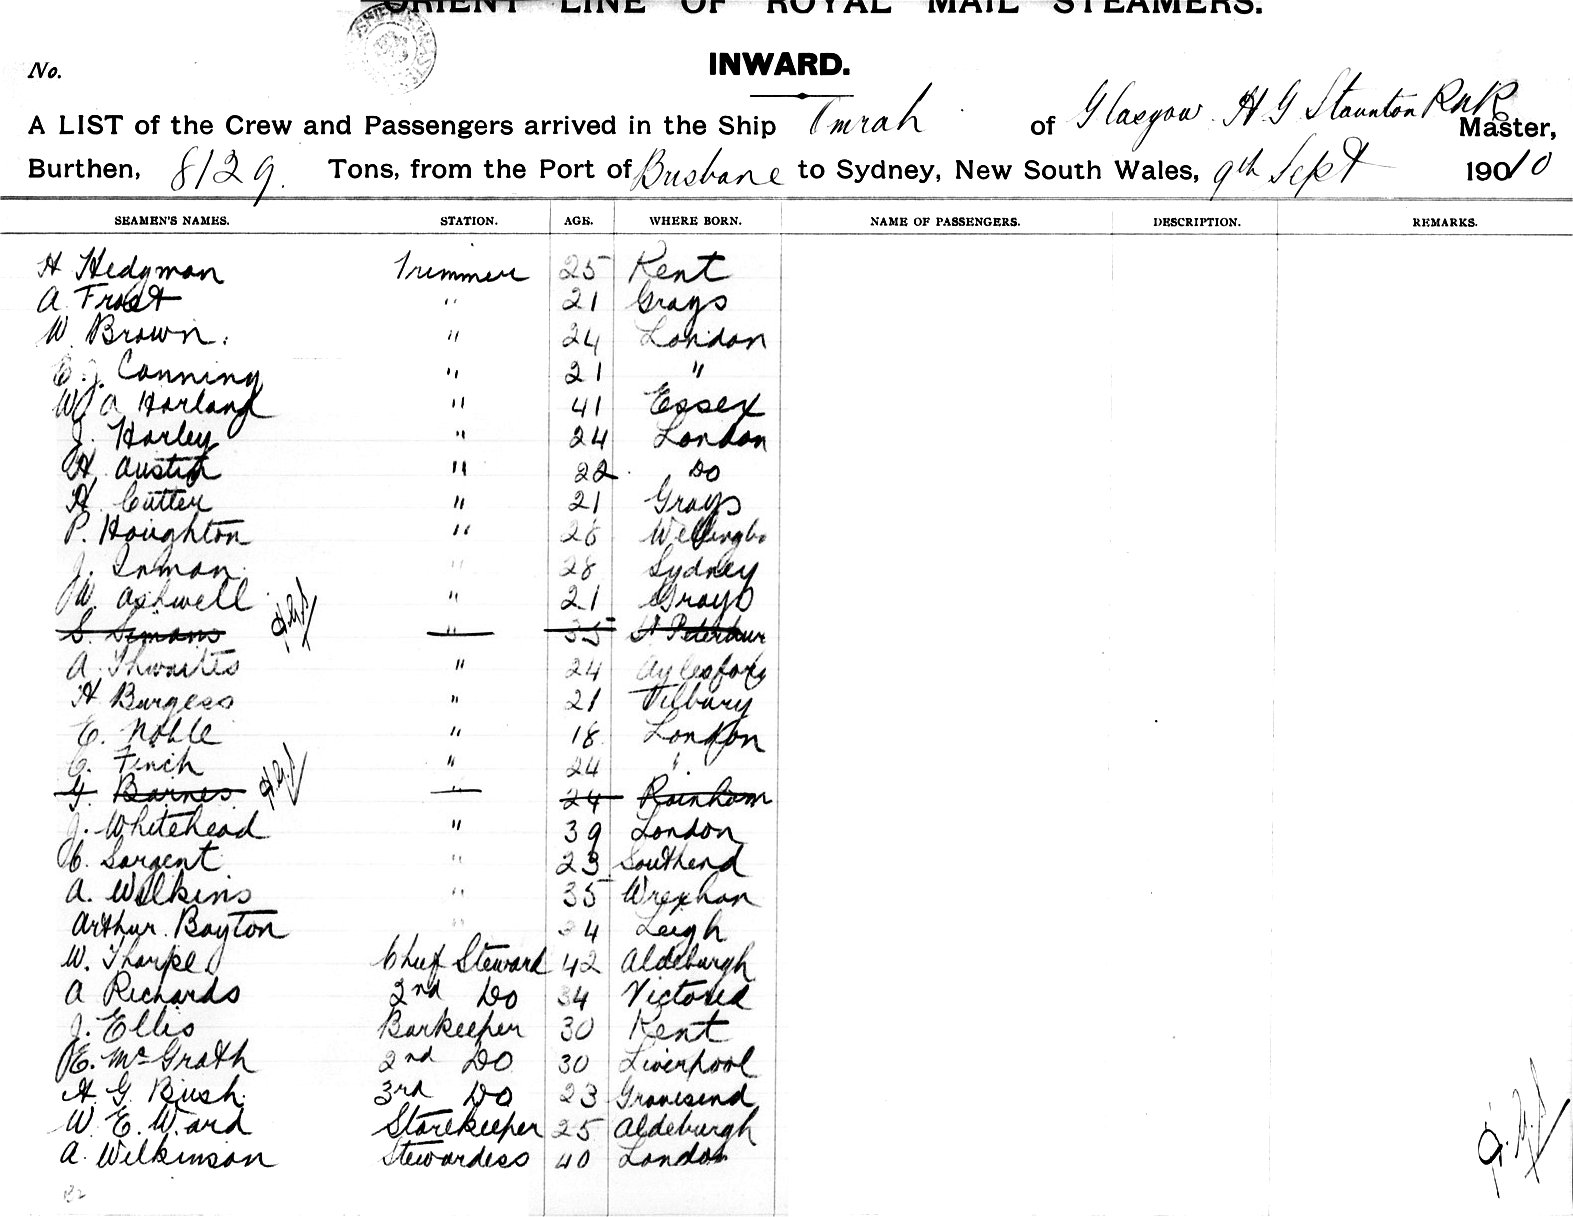 ORIENT LINE OF ROYAL MAIL STEAMERS.
INWARD.
No.
A LIST of the Crew and Passengers arrived in the Ship Omrah of Glasgow H G Staunton RNR Master,
Burthen, 8129. Tons, from the Port of Brisbane to Sydney, New South Wales, 9th Sept 190/10
SEAMEN'S NAMES. STATION. AGE. WHERE BORN. NAME OF PASSENGERS. DESCRIPTION. REMARKS.
H Hedgman Trimmer 25 Kent
A. Frost " 21 Grays
W. Brown. " 24 London
C. J. Canning " 21 "
W J A Harland " 41 Essex
J. Harley " 24 London
H. Austin " 22 Do
H. Cutter " 21 Grays
P. Houghton " 28
J. Inman " 28 Sydney
W. Ashwell " 21 Grays
S. Simans " 35
A. Thwaites " 24 Aylesford
H Burgess " 21 Tilbury
E. Noble " 18 London
C. Finch " 24 "
G. Barnes " 24 Rainham
J. Whitehead " 39 London
C. Sargent " 23 Southend
A. Wilkins " 35 Wrexham
Arthur Bayton " 24 Leigh
W. Tharpe Chief Steward 42 Aldeburgh
A Richards 2nd Do 34 Victoria
J. Ellis Barkeeper 30 Kent
E. McGrath 2nd Do 30 Liverpool
H. G. Bush. 3rd Do 23 Gravesend
W. E. Ward Storekeeper 25 Aldeburgh
A. Wilkinson Stewardess 40 London